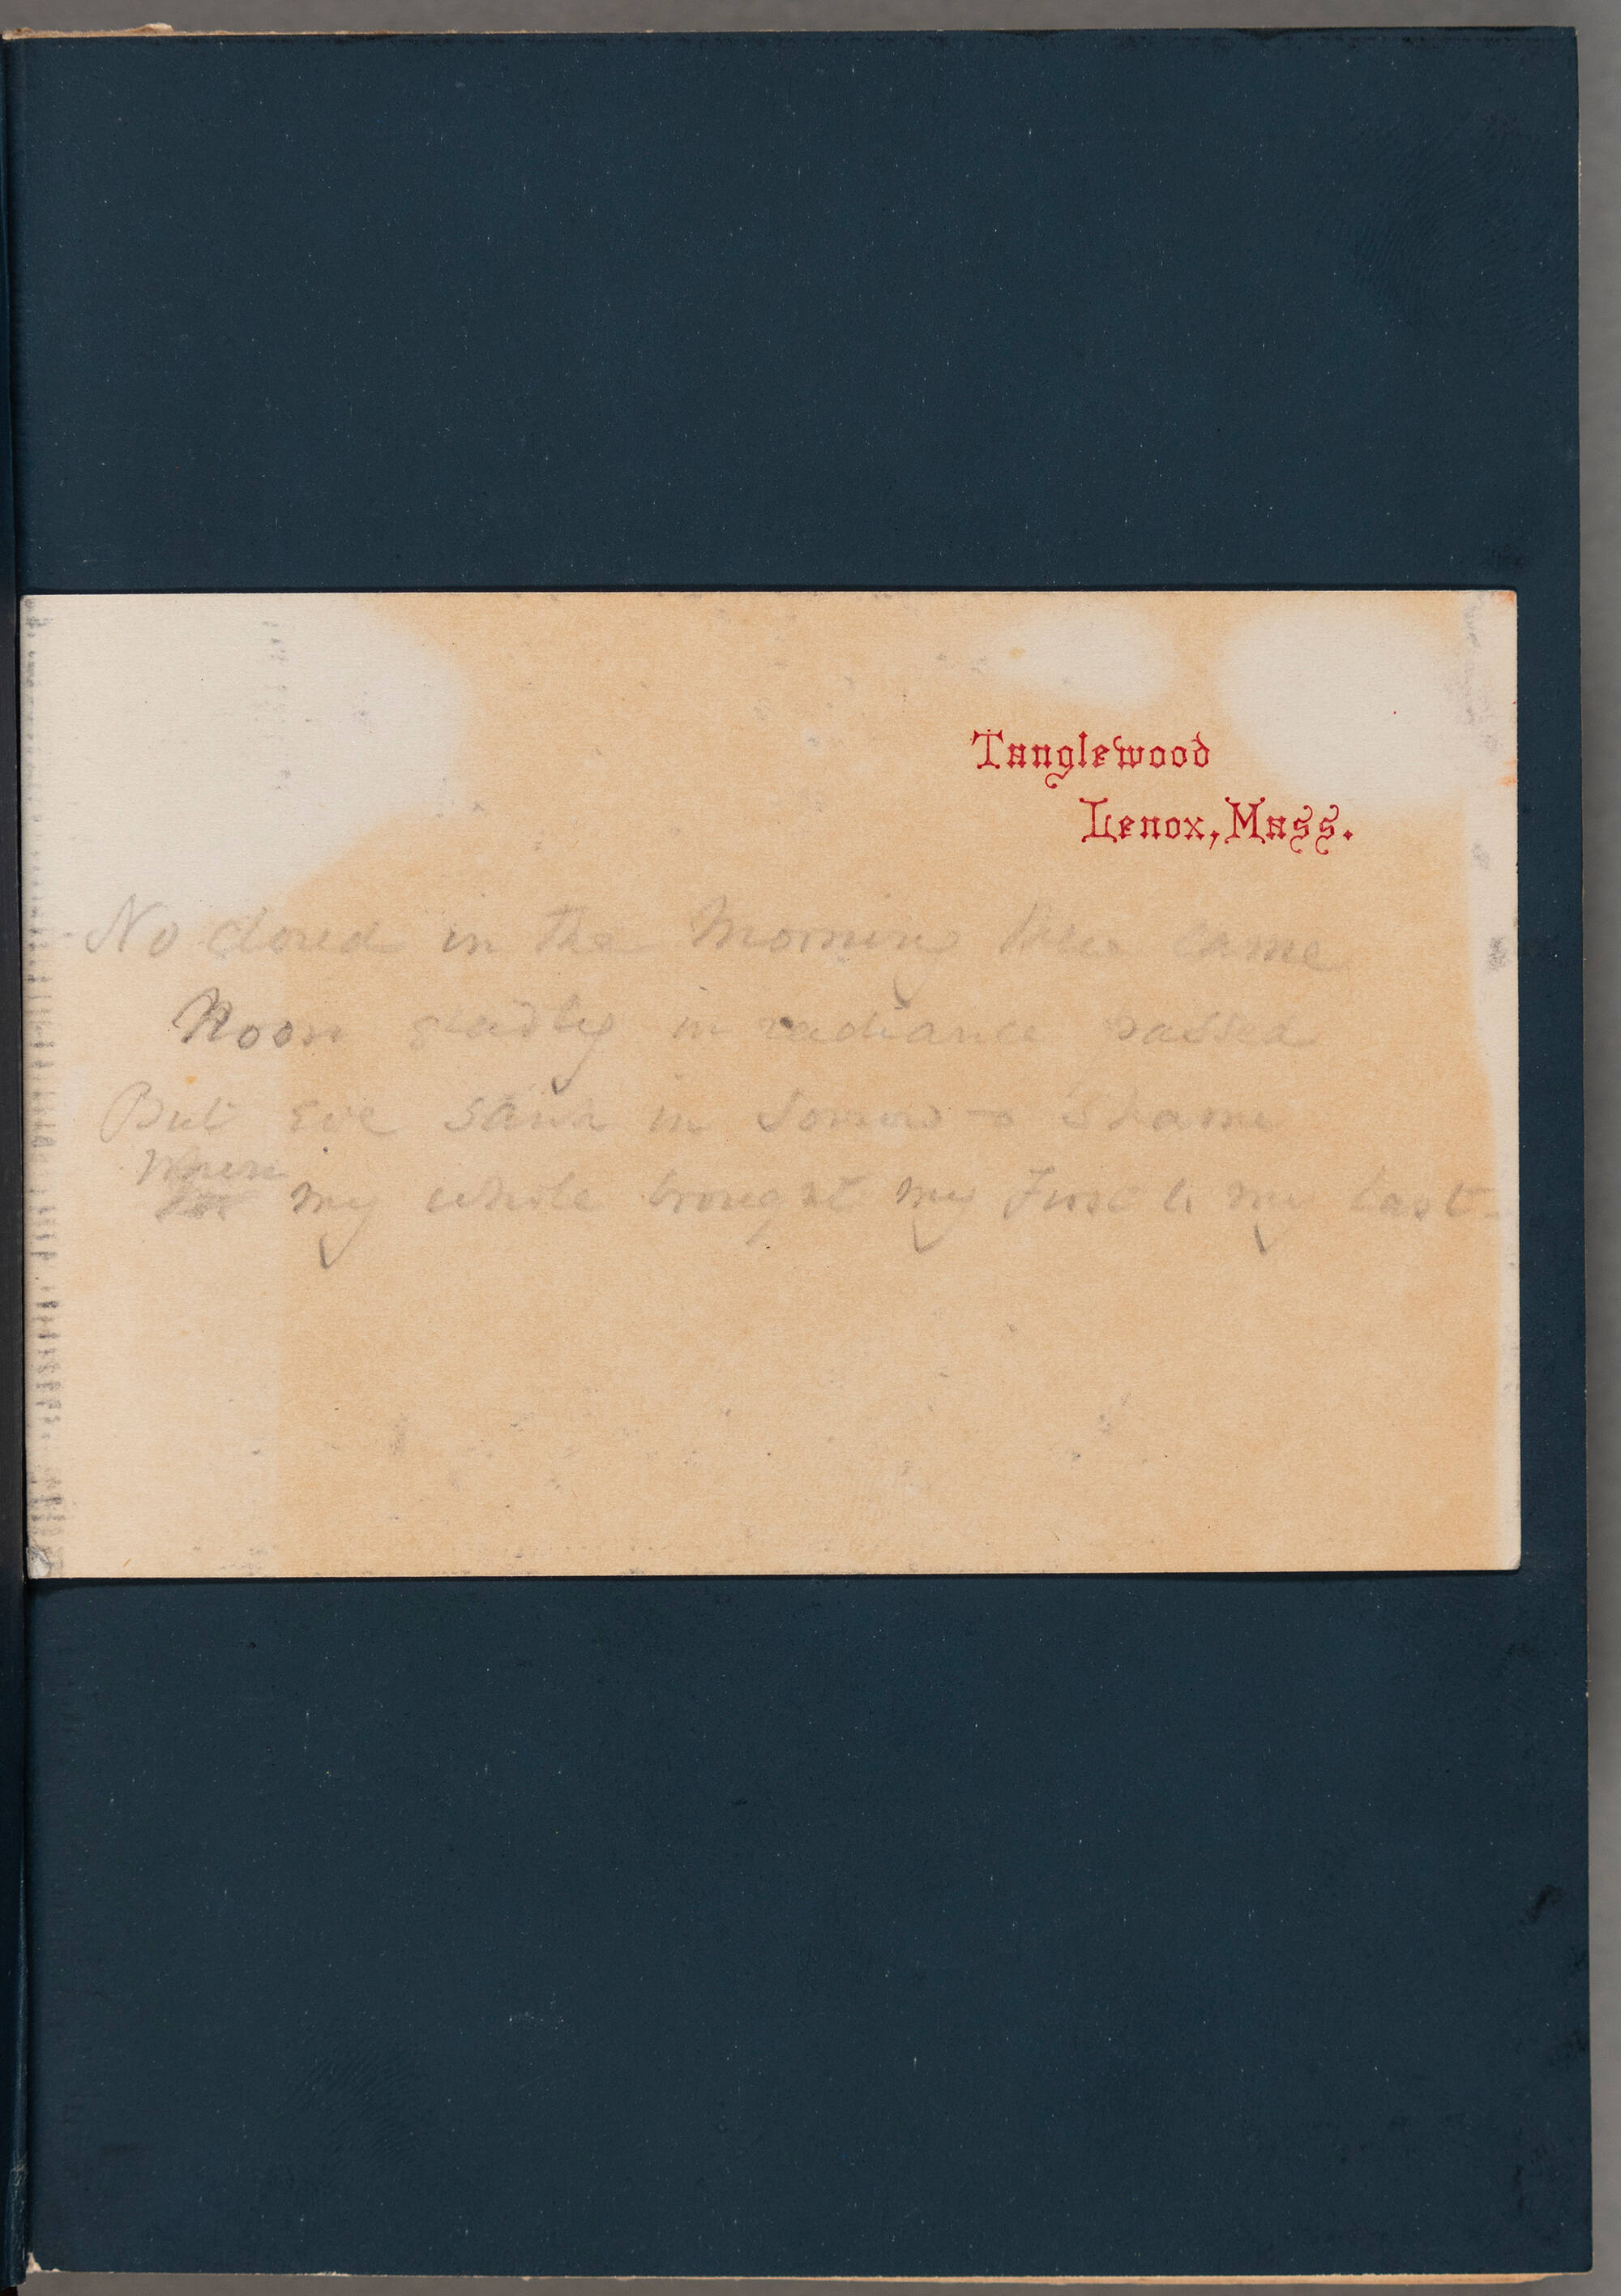 Tanglewood
Lenox, Mass.
No cloud in the morning blue came
Noon gladly in radiance passed
But Eve sank in sorrow & shame
When
for my whole brought my first to my last-